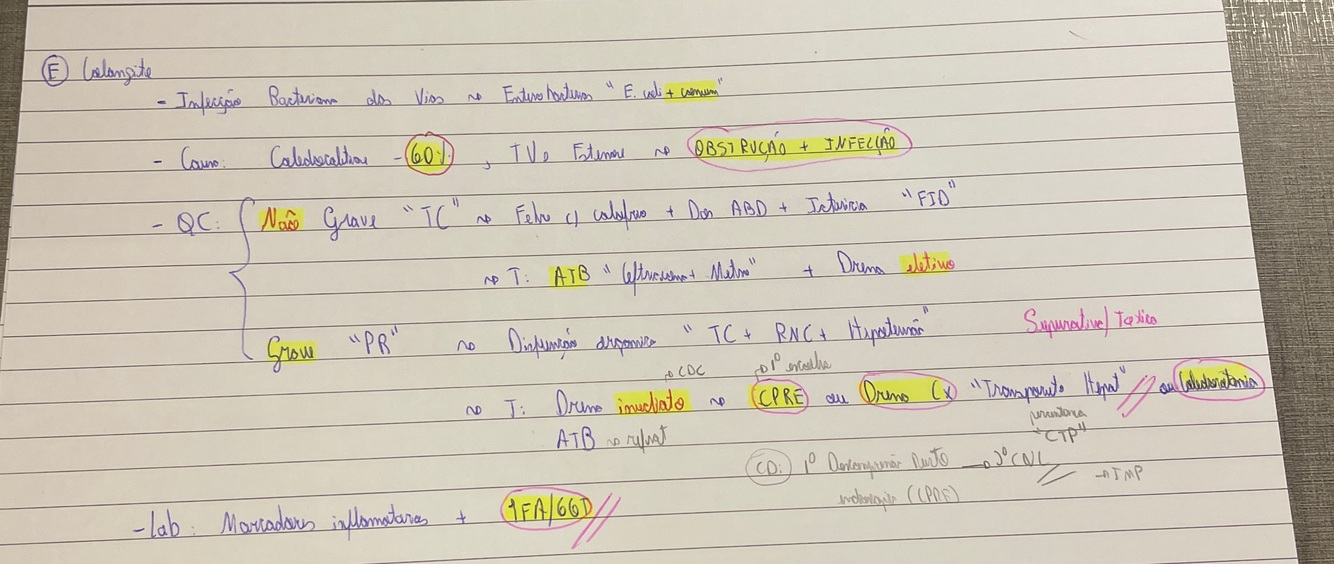 (E) Colangite
- Infecção Bacteriana das Vias → Enterobactérias "E. coli + comum"
- Causa: Coledocolitíase - 60%, TU, Estenose → OBSTRUÇÃO + INFECÇÃO
- QC: { Não Grave "TC" → Febre c/ calafrio + Dor ABD + Icterícia "FID"
→ T: ATB "Ceftriaxona + Metro" + Drena eletivo
Grave "PR" → Disfunção orgânica "TC + RNC + Hipotensão" Supurativa/Tóxica
→ CDC → 1º escolha
→ T: Drena imediato → CPRE ou Dreno Cx "Transparieto Hepat" // ou Coledocotomia
ATB → percutânea "CTP"
CD: 1º Descompressão Ducto → 
endoscopia (CPRE) → IMP
- Lab: Marcadores inflamatórios + ↑FA/GGT //